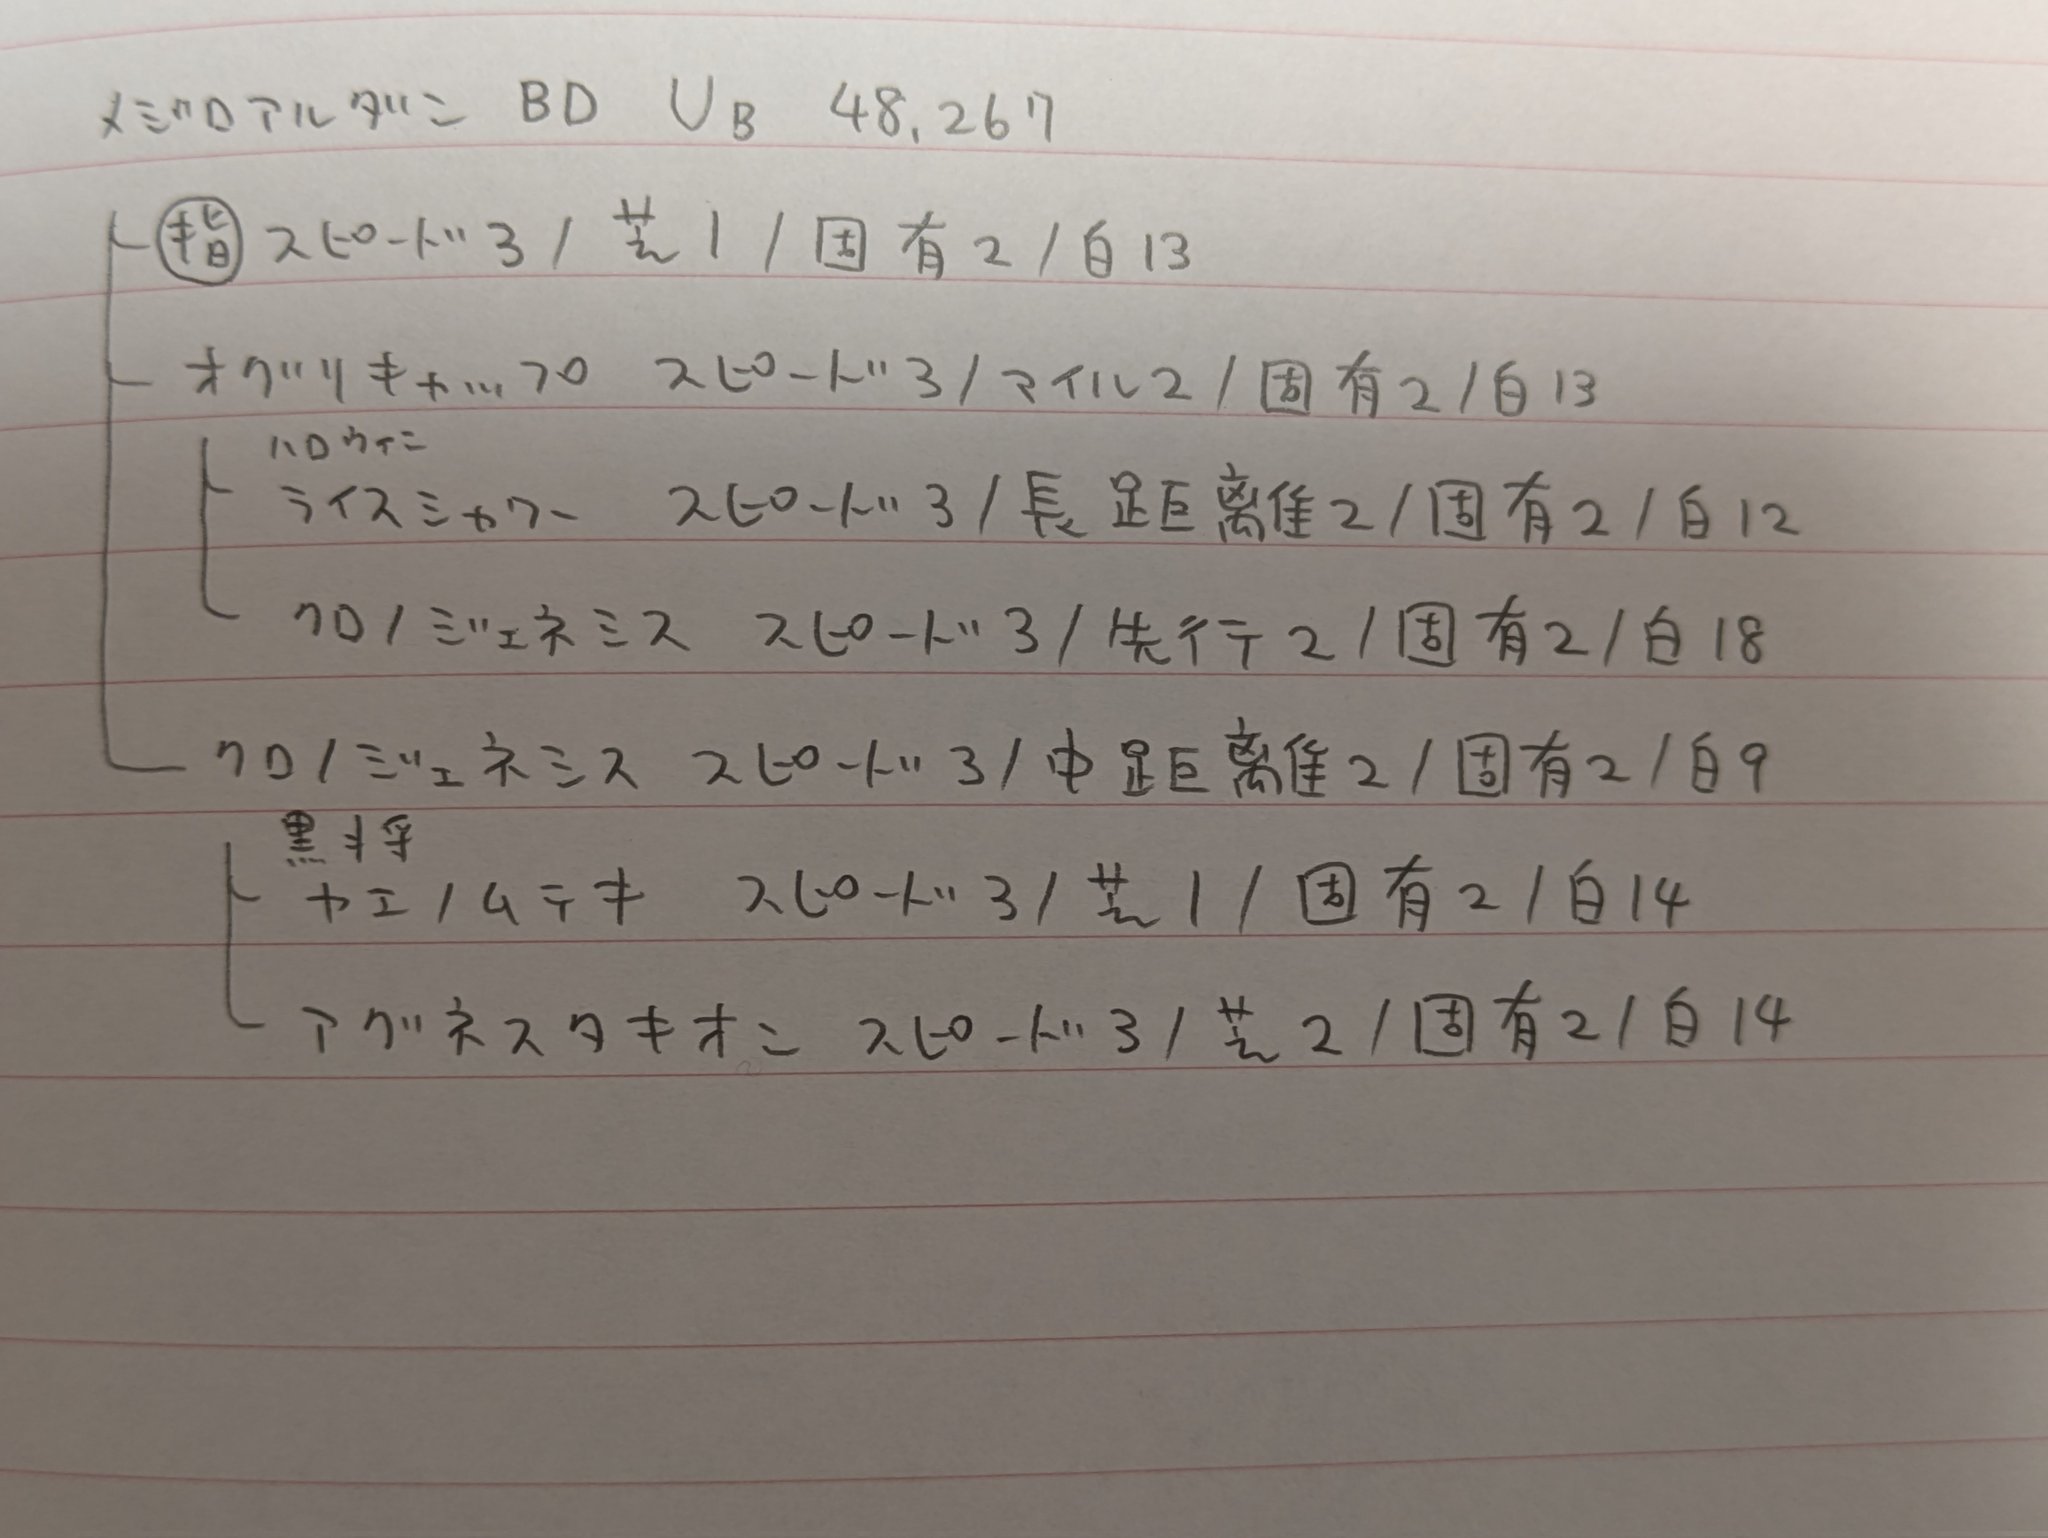 メジロアルダン BD UB 48,267
指 スピード3/芝1/固有2/白13
オグリキャップ スピード3/マイル2/固有2/白13
ハロウィン
ライスシャワー スピード3/長距離2/固有2/白12
クロノジェネシス スピード3/先行2/固有2/白18
クロノジェネシス スピード3/中距離2/固有2/白9
黒拝
ヤエノムテキ スピード3/芝1/固有2/白14
アグネスタキオン スピード3/芝2/固有2/白14